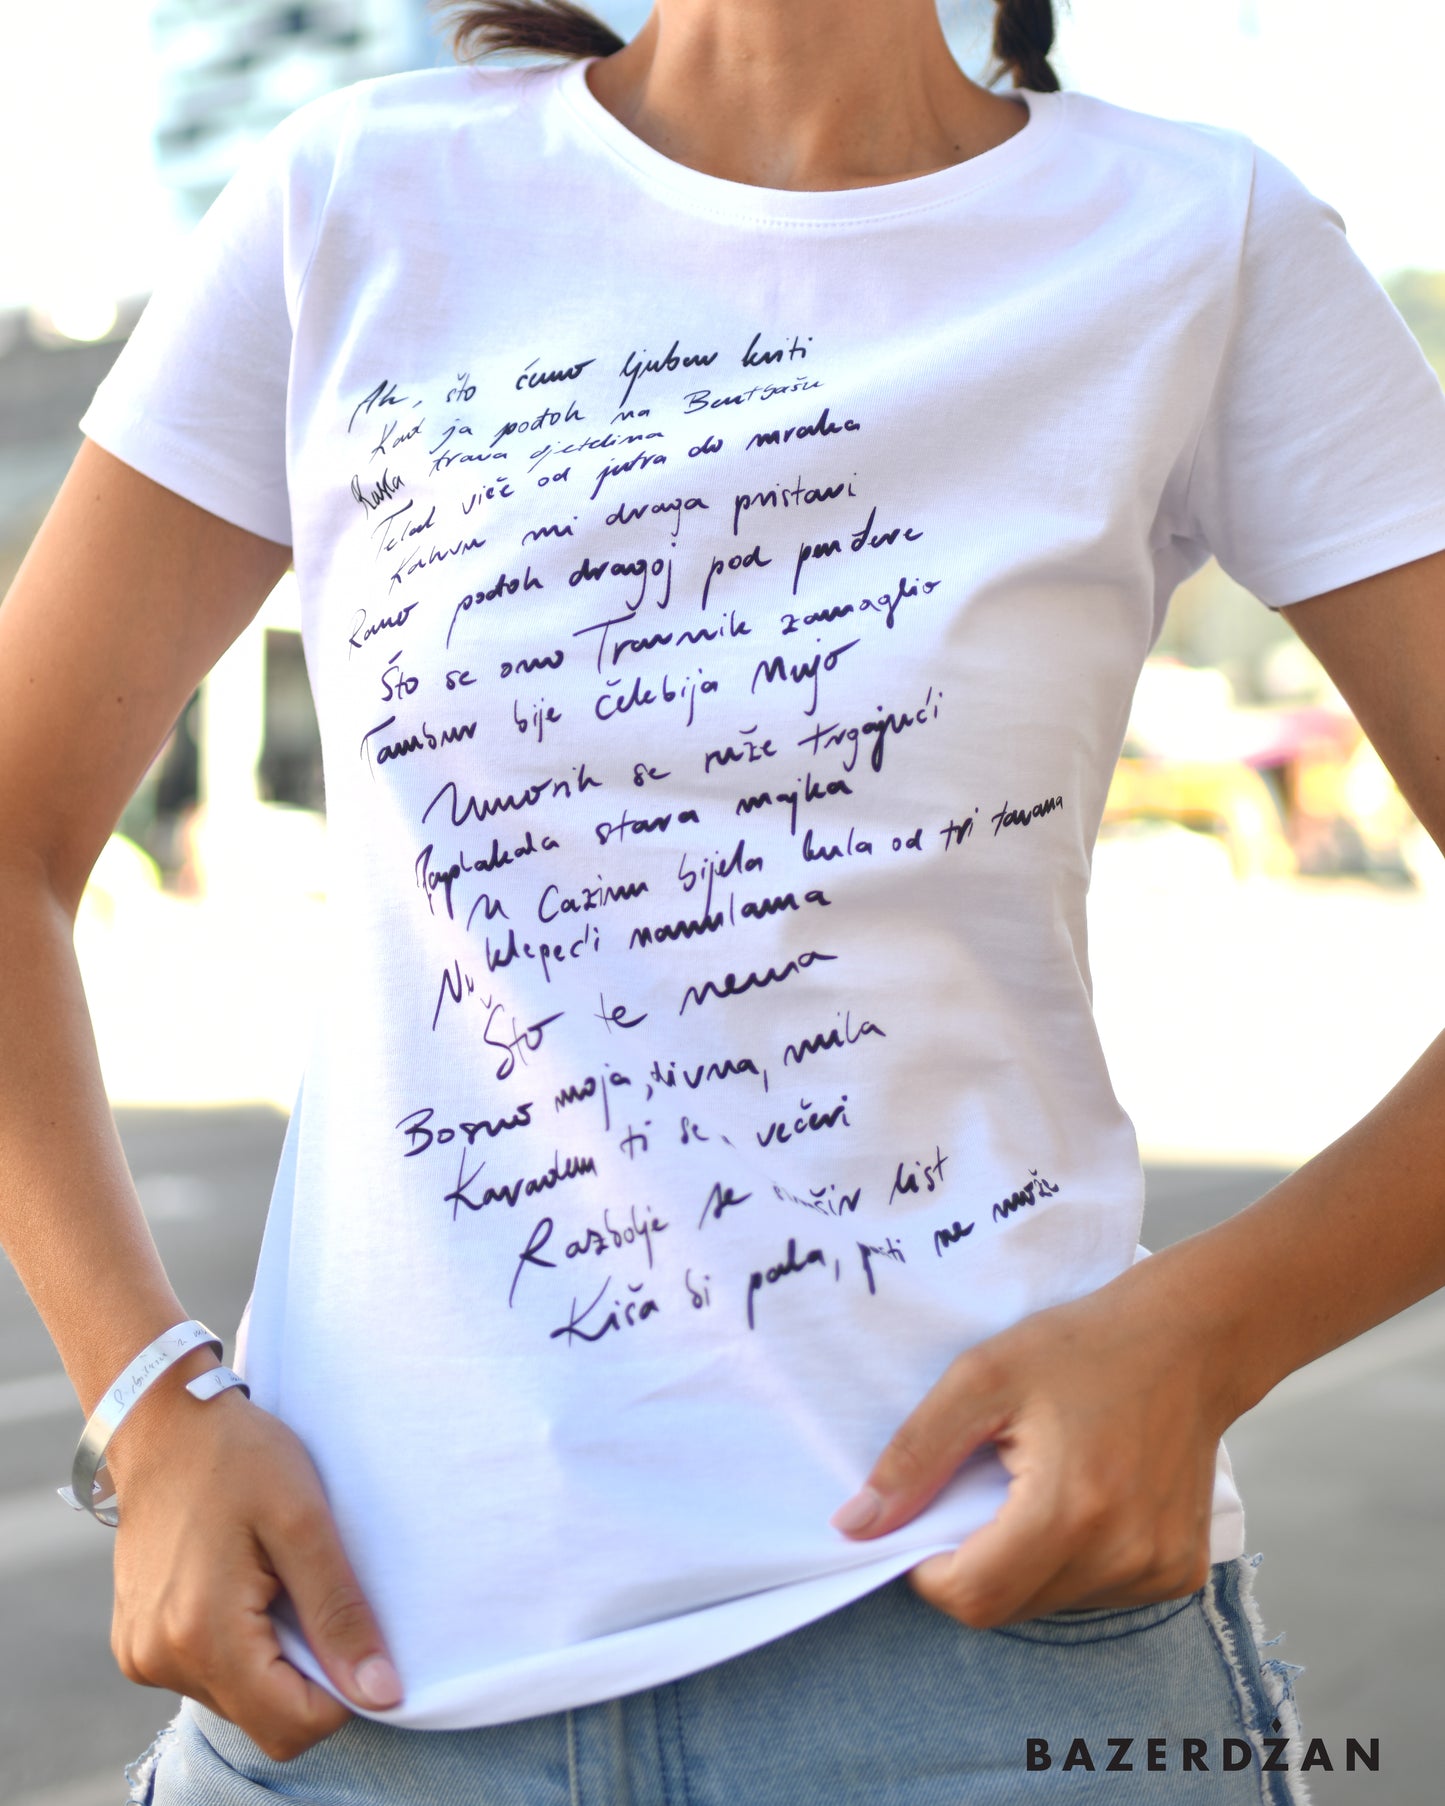 Ah, što ćemo ljubav kriti
Kad ja pođoh na Bentbašu
Raska trava djetelina
Telal viče od jutra do mraka
Kahvu mi draga pristavi
Rano pođoh dragoj pod penđere
Što se ono Travnik zamaglio
Tambur bije Čelebija Mujo
Umorih se ruže trgajući
Zaplakala stara majka
U Cazinu bijela kula od tri tavana
Ne klepeći nanulama
Što te nema
Bosno moja, divna, mila
Karadum ti se, večeri
Razbolje se list
Kiša bi pala, pasti ne može
BAZERDŽAN